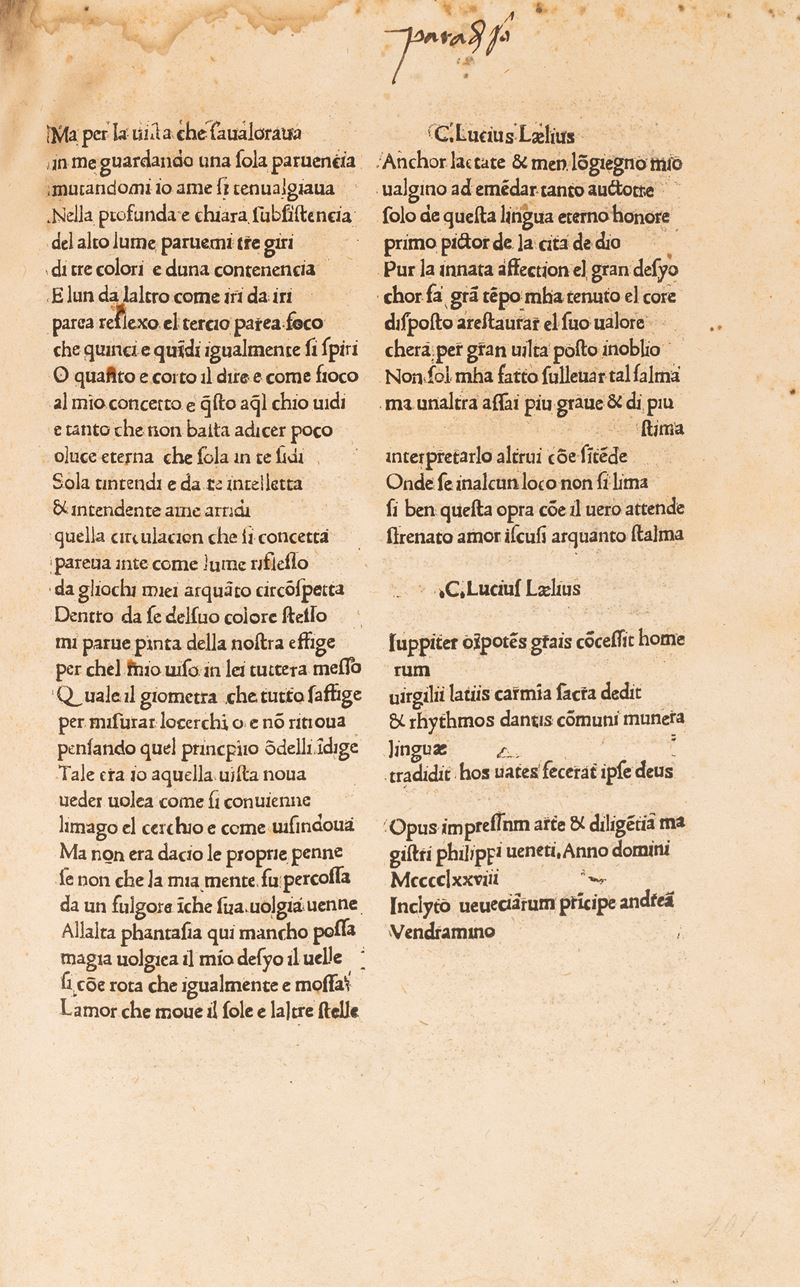 paradiso
Ma per la uista che ſaualoraua
in me guardando una ſola paruencia
mutandomi io ame ſi tenualgiaua
Nella profunda e chiara ſubſiſtencia
del alto lume paruemi tre giri
di tre colori e duna contenencia
E lun da laltro come iri da iri
parea reflexo el tercio parea foco
che quinci e quīdi igualmente ſi ſpiri
O quanto e corto il dire e come fioco
al mio concetto e q̄ſto aq̄l chio uidi
e tanto che non baſta adicer poco
oluce eterna che ſola in te ſidi
Sola tintendi e da te intelletta
& intendente ame arridi
quella circulacion che ſi concetta
pareua inte come lume rifleſſo
da gliochi miei arquāto circōſpetta
Dentro da ſe delſuo colore ſteſſo
mi parue pinta della noſtra effige
per chel mio uiſo in lei tuttera meſſo
Quale il giometra che tutto ſaffige
per miſurar locerchio e nō ritioua
penſando quel princpiio ōdelli īdige
Tale era io aquella uiſta noua
ueder uolea come ſi conuienne
limago el cerchio e come uiſindoua
Ma non era dacio le proprie penne
ſe non che la mia mente fu percoſſa
da un fulgore īche ſua uolgia uenne
Allalta phantaſia qui mancho poſſa
magia uolgiea il mio deſyo il uelle
ſi cōe rota che igualmente e moſſa
Lamor che moue il ſole e laltre ſtelle
C. Lucius Lælius
Anchor lactate & men lōgiegno mio
ualgino ad emēdar tanto auctorre
ſolo de queſta lingua eterno honore
primo pictor de la cita de dio
Pur la innata affection el gran deſyo
chor fa grā tēpo mha tenuto el core
diſpoſto areſtaurar el ſuo ualore
chera per gran uilta poſto inoblio
Non ſol mha fatto ſulleuar tal ſalma
ma unaltra aſſai piu graue & di piu
ſtima
interpretarlo altrui cōe ſītēde
Onde ſe inalcun loco non ſi lima
ſi ben queſta opra cōe il uero attende
ſtrenato amor iſcuſi arquanto ſtalma
C. Luciuſ Lælius
Iuppiter oīpotēs gr̄ais cōceſſit home
rum
uirgilii latiis carmīa ſacra dedit
& rhythmos dantis cōmuni munera
linguæ
tradidit hos uates fecerat ipſe deus
Opus impreſſnm arte & diligētia ma
giſtri philippi ueneti. Anno domini
Mcccclxxviii
Inclyto ueueciārum prīcipe andrea
Vendramino